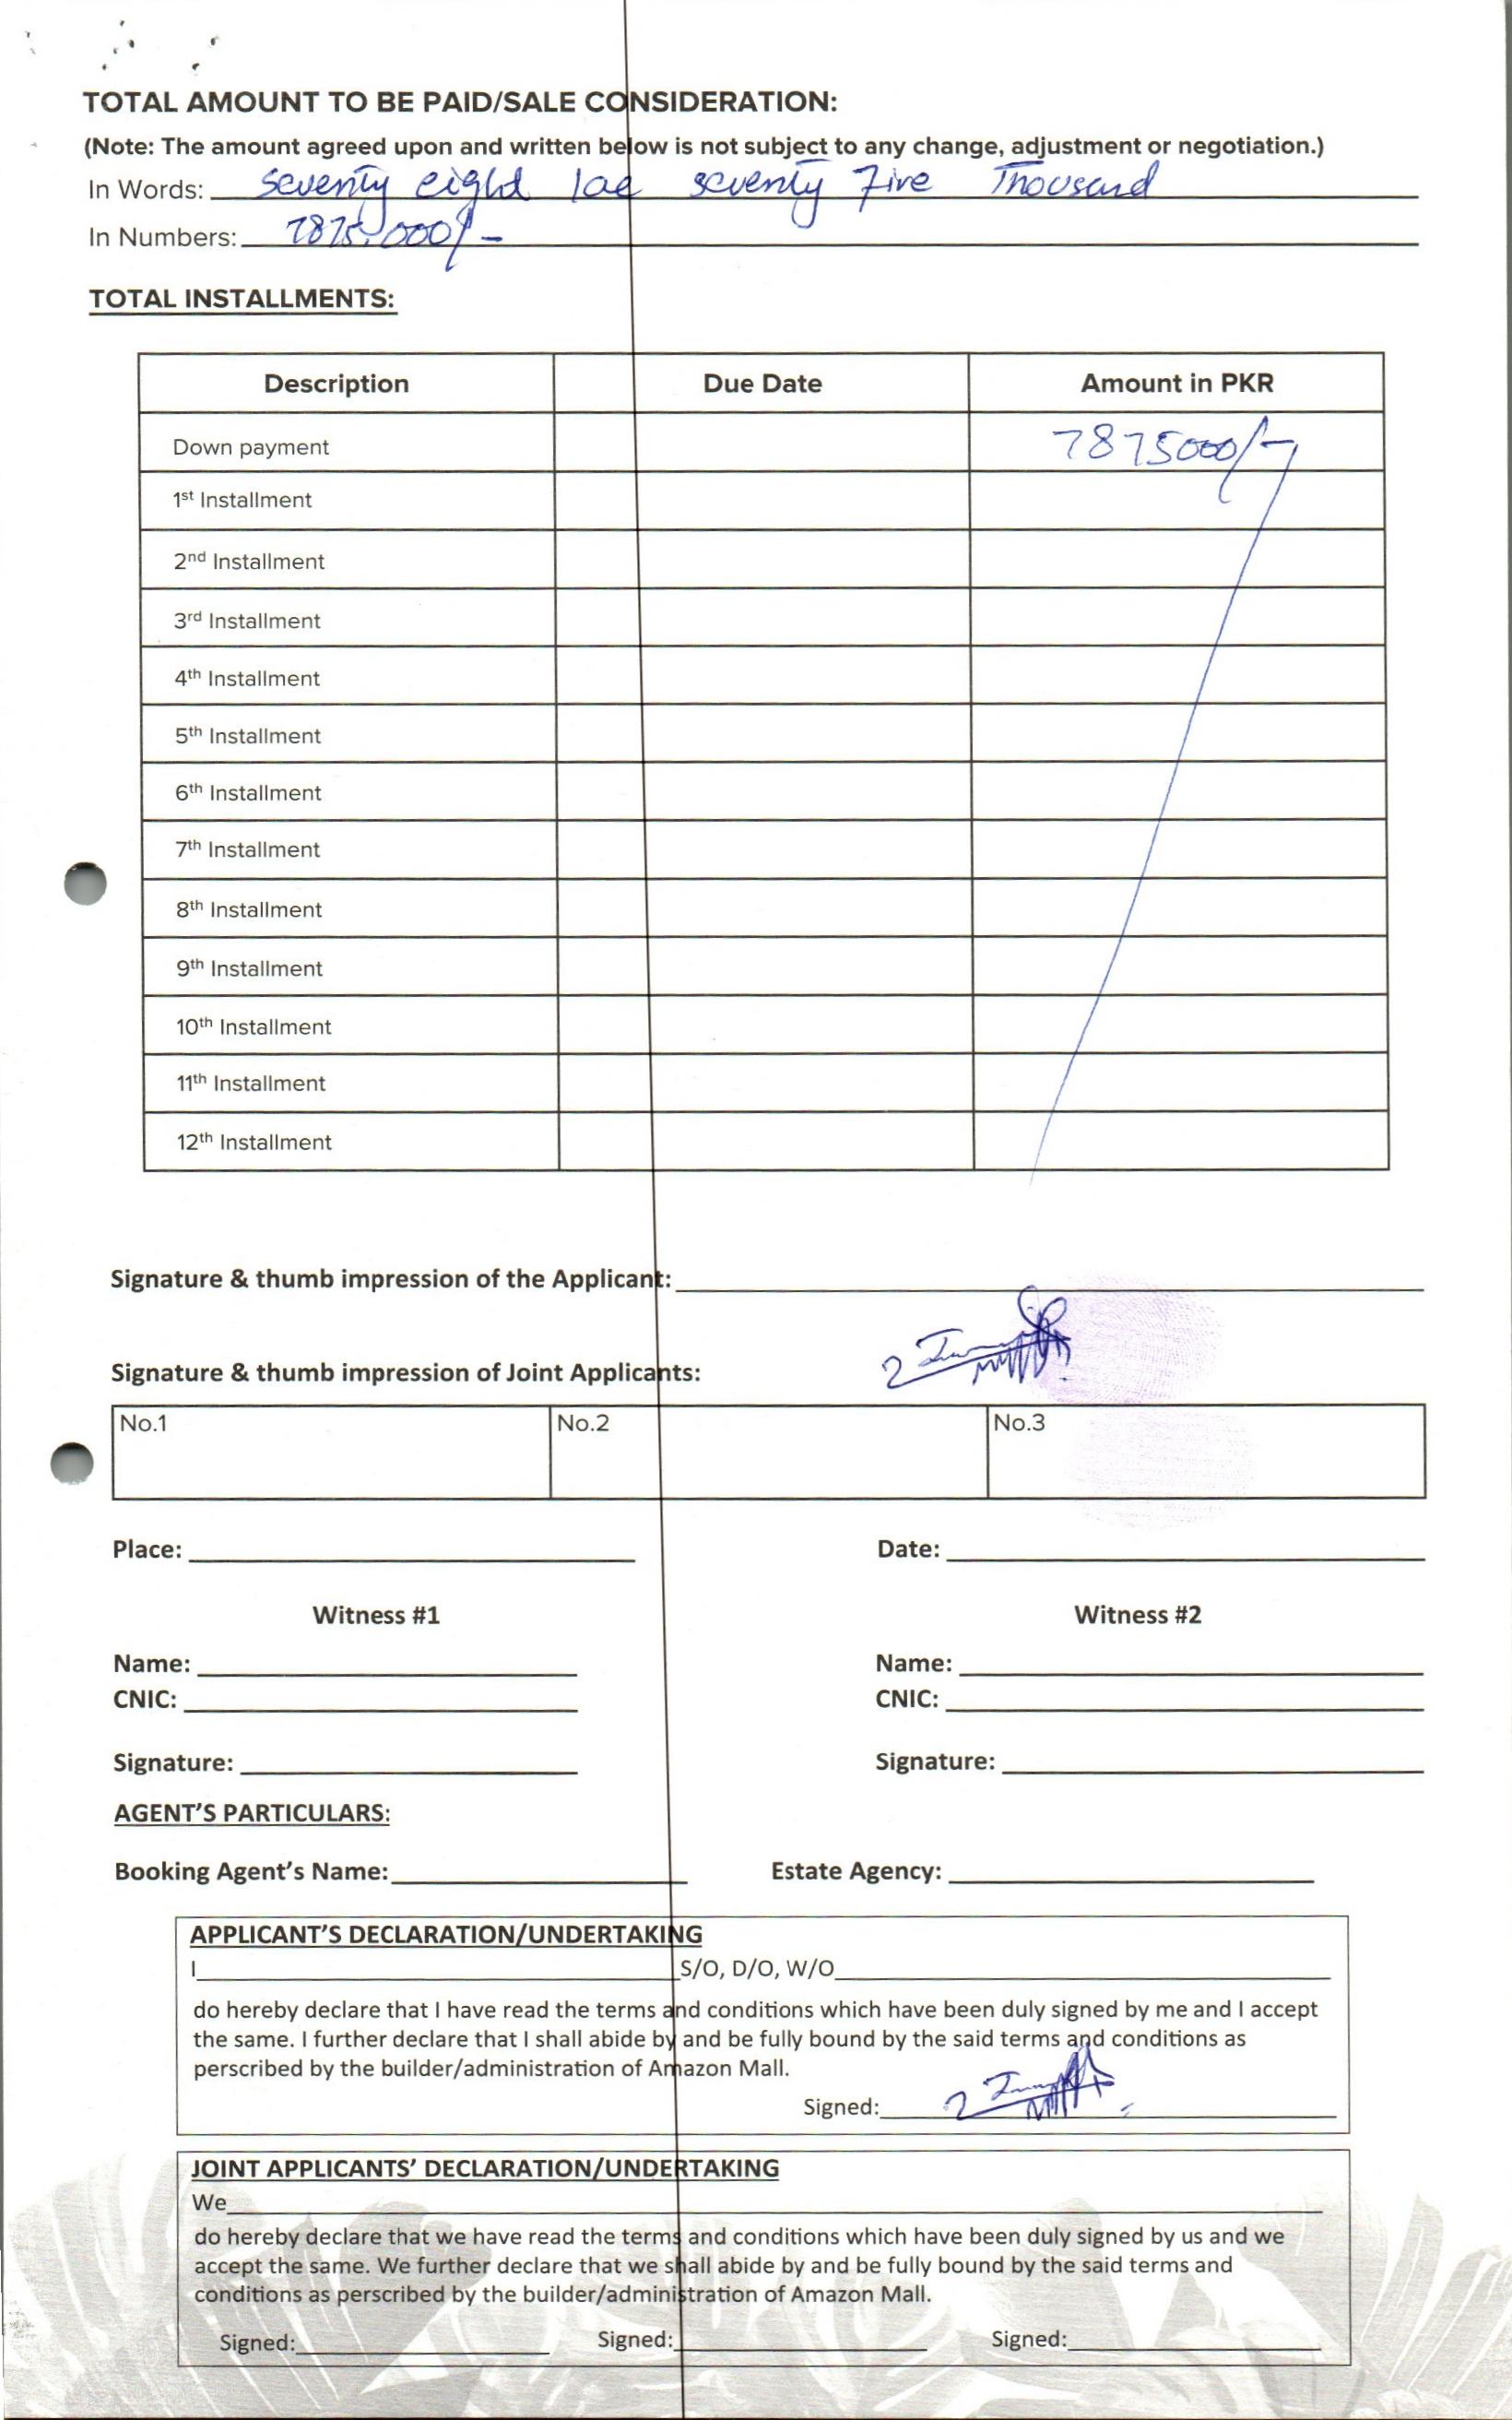 TOTAL AMOUNT TO BE PAID/SALE CONSIDERATION:
(Note: The amount agreed upon and written below is not subject to any change, adjustment or negotiation.)
In Words: Seventy eight lac seventy Five Thousand
In Numbers: 7875,000/-
TOTAL INSTALLMENTS:
Description Due Date Amount in PKR
Down payment 7875000/-
1st Installment
2nd Installment
3rd Installment
4th Installment
5th Installment
6th Installment
7th Installment
8th Installment
9th Installment
10th Installment
11th Installment
12th Installment
Signature & thumb impression of the Applicant:
Signature & thumb impression of Joint Applicants:
No.1 No.2 No.3
Place: Date:
Witness #1 Witness #2
Name: Name:
CNIC: CNIC:
Signature: Signature:
AGENT'S PARTICULARS:
Booking Agent's Name: Estate Agency:
APPLICANT'S DECLARATION/UNDERTAKING
I S/O, D/O, W/O
do hereby declare that I have read the terms and conditions which have been duly signed by me and I accept
the same. I further declare that I shall abide by and be fully bound by the said terms and conditions as
perscribed by the builder/administration of Amazon Mall.
Signed:
JOINT APPLICANTS' DECLARATION/UNDERTAKING
We
do hereby declare that we have read the terms and conditions which have been duly signed by us and we
accept the same. We further declare that we shall abide by and be fully bound by the said terms and
conditions as perscribed by the builder/administration of Amazon Mall.
Signed: Signed: Signed: